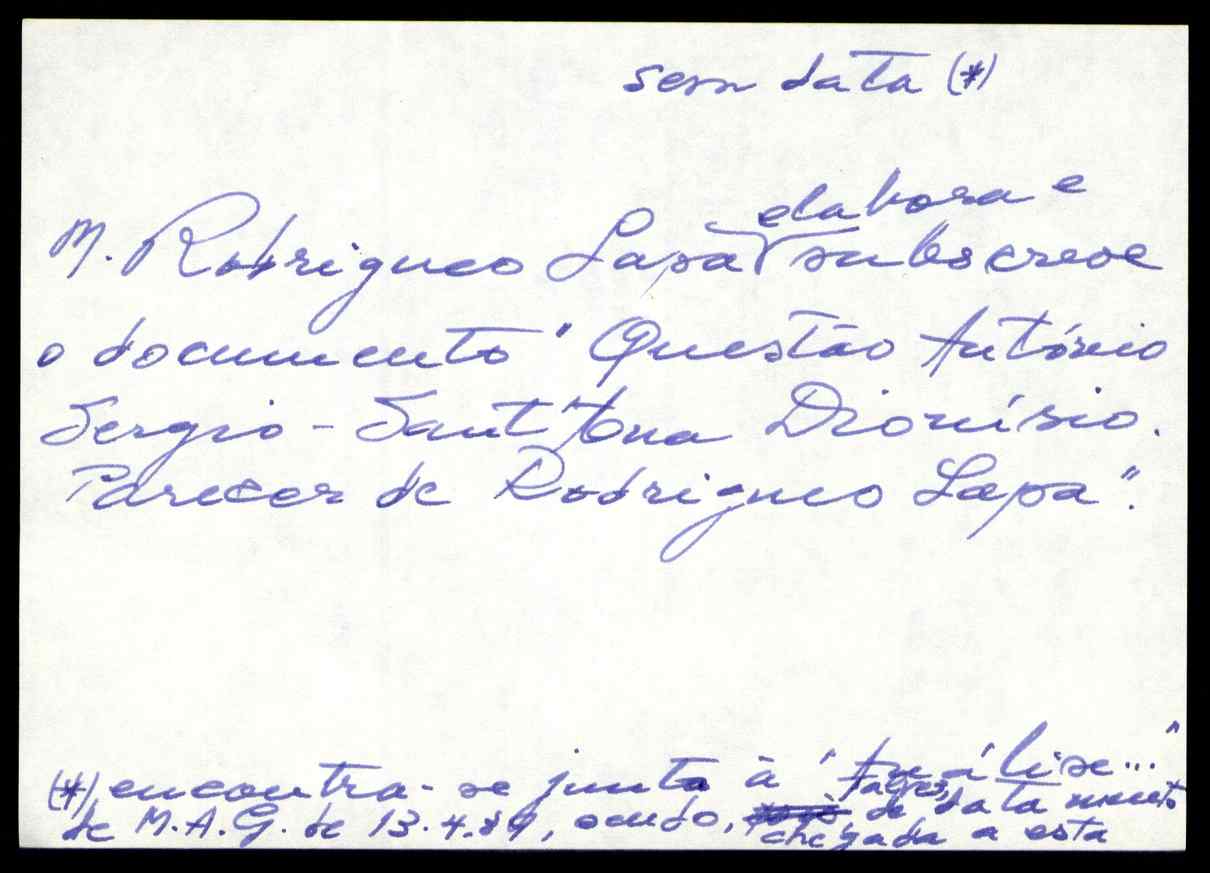 sem data (*)
elabora e
M. Rodrigues Lapa subscreve
o documento "Questão António
Sergio - Sant'Ana Dionísio.
Parecer de Rodrigues Lapa".
(*) encontra-se junta à "Análise..."
de M.A.G. de 13.4.89, sendo, talvez, de data muito
chegada a esta